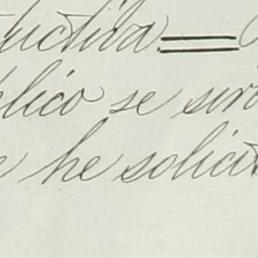 uctiva =
plico se sirv
he solicit